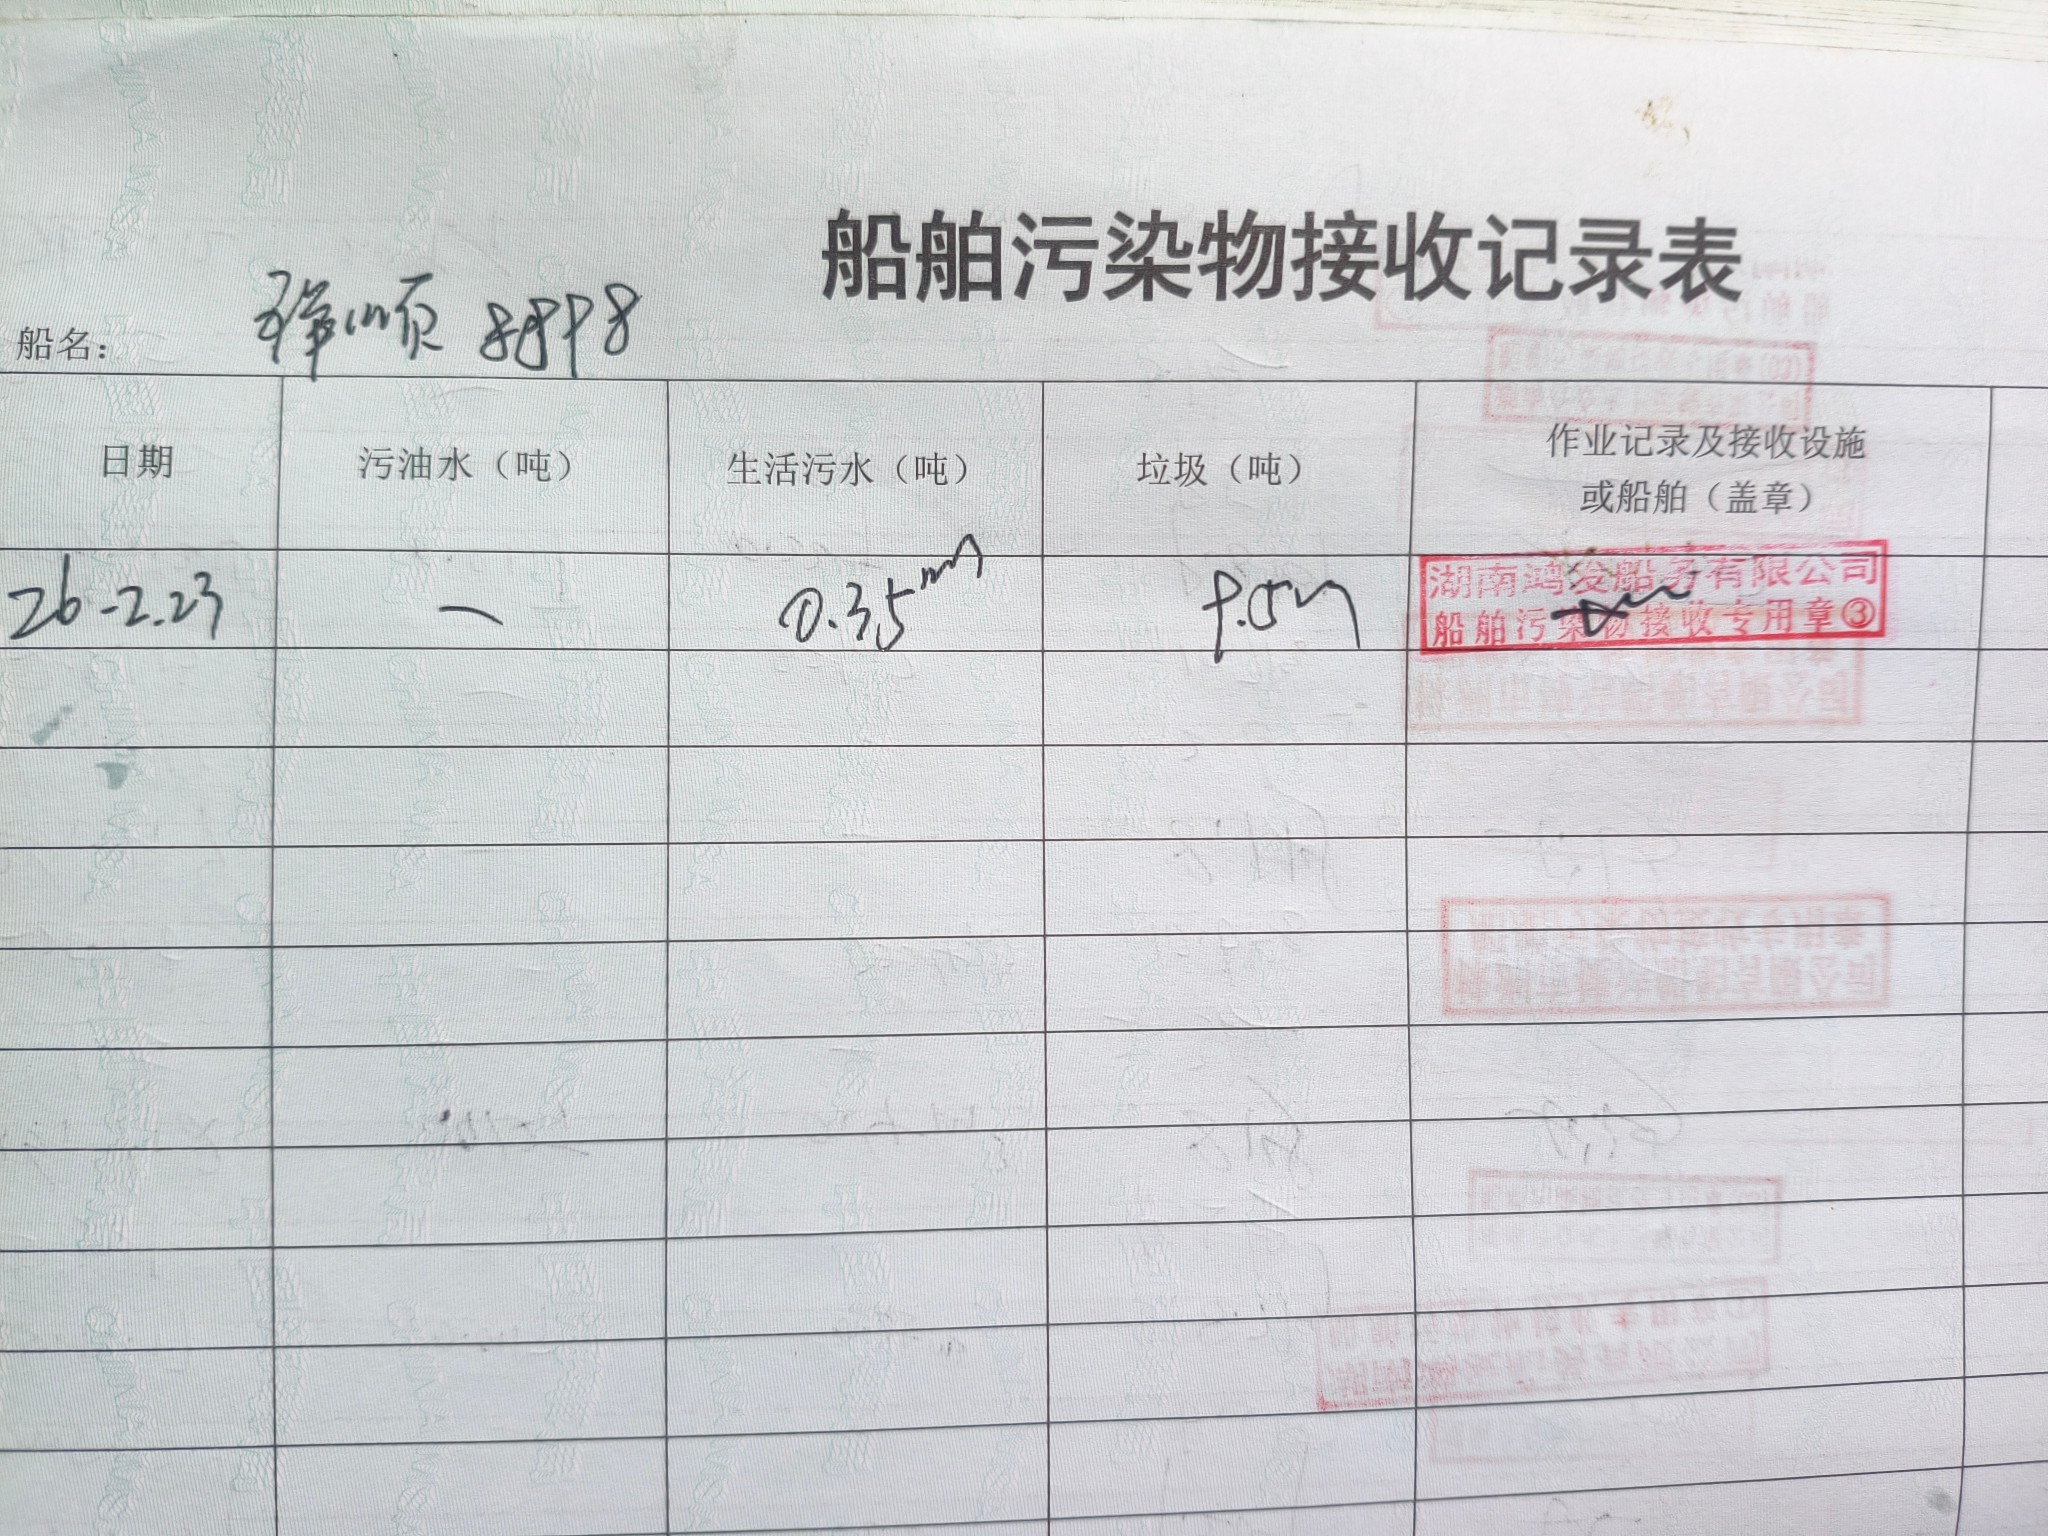 船舶污染物接收记录表
船名： 顺 8898
日期 污油水（吨） 生活污水（吨） 垃圾（吨） 作业记录及接收设施
或船舶（盖章）
26-2.23 一 0.35 湖南鸿发船务有限公司
船舶污染物接收专用章③